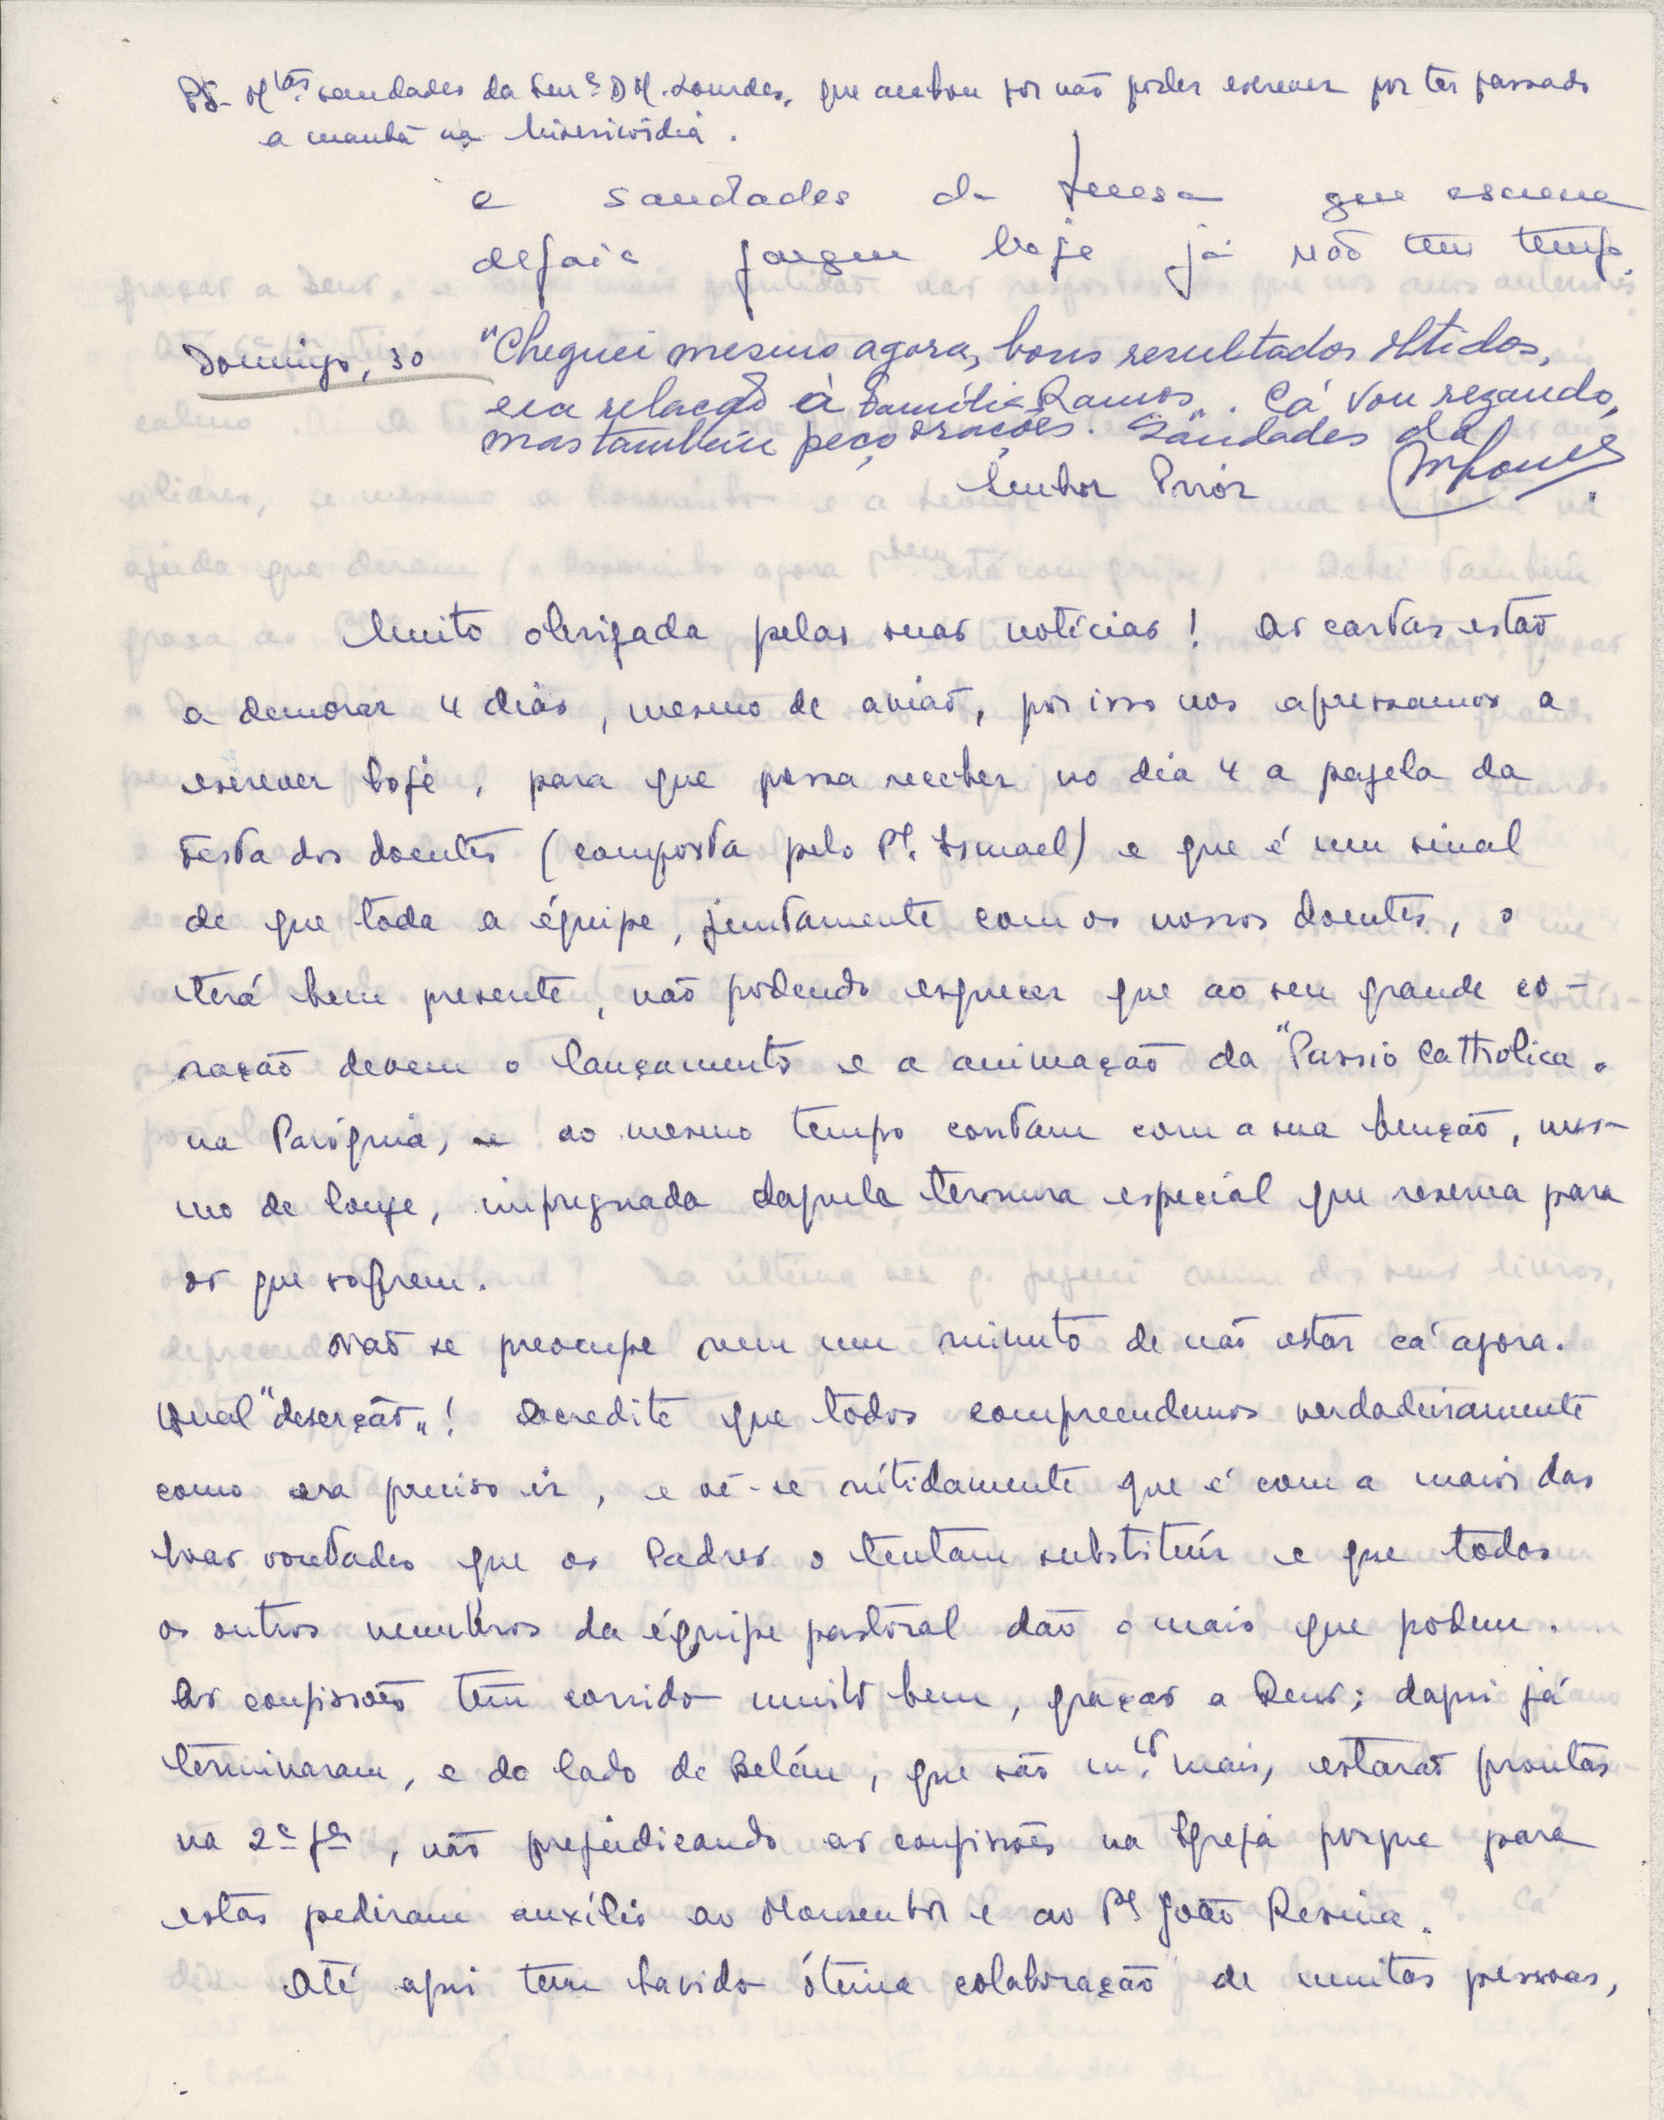 PS- Mtas saudades da Senra D M. Lourdes, que acabou por não poder escrever por ter passado
a manhã na Misericórdia.
e saudades da Teresa que escreve
depois porque hoje já não tem tempo.
Domingo, 30 "Cheguei mesmo agora, bons resultados obtidos,
em relação à Família Ramos". Cá vou rezando,
mas também peço orações. Saudades da
Senhor Prior
Muito obrigada pelas suas notícias! As cartas estão
a demorar 4 dias, mesmo de avião, por isso nos apressamos a
escrever hoje, para que possa receber no dia 4 a pagela da
Festa dos doentes (composta pelo Pe. Ismael) e que é um sinal
de que toda a équipe, juntamente com os nossos doentes, o
terá bem presente, não podendo esquecer que ao seu grande co-
ração devem o lançamento e a animação da "Passio Catholica"
na Paróquia, e ao mesmo tempo contam com a sua benção, mes-
mo de longe, impregnada daquela ternura especial que reserva para
os que sofrem.
Não se preocupe nem um minuto de não estar cá agora.
Qual "deserção"! Acredite que todos compreendemos verdadeiramente
como era preciso ir, e vê-se nítidamente que é com a maior das
boas vontades que os Padres o tentam substituír e que todos
os outros membros da équipe pastoral dão o mais que podem.
As confissões têm corrido muito bem, graças a Deus; daqui já
terminaram, e do lado de Belém, que são mto mais, estarão prontas
na 2ª fª, não prejudicando as confissões na Igreja porque para
estas pediram auxílio ao Monsenhor e ao Pe João Resina.
Até aqui tem havido óptima colaboração de muitas pessoas,